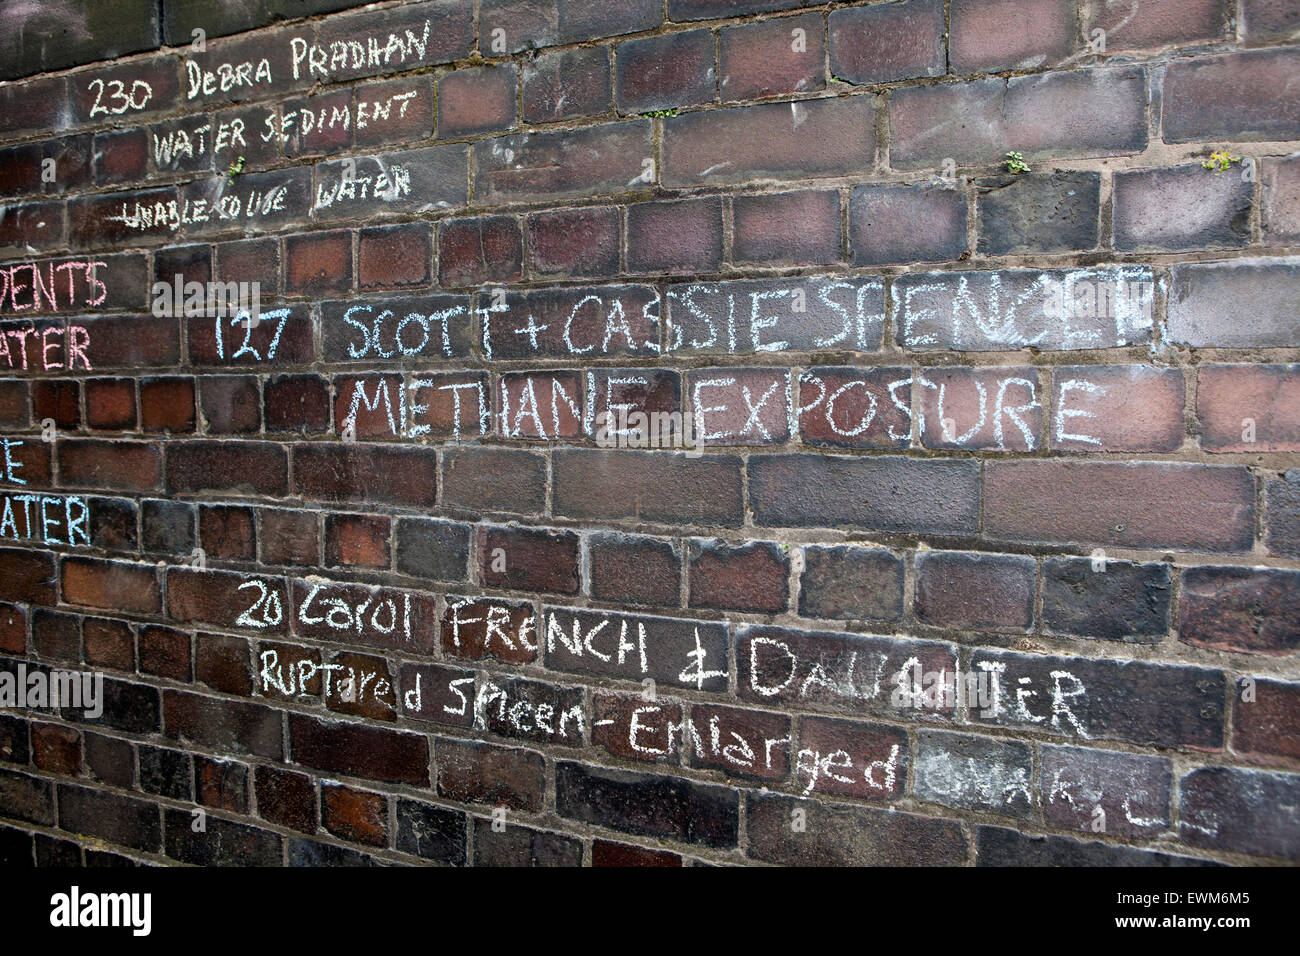 230 DEBRA PRADHAN
WATER SEDIMENT
UNABLE TO USE WATER
DENTS
ATER
127 SCOTT + CASSIE SPENCER
METHANE EXPOSURE
E
ATER
20 Carol FRENCH & DAUGHTER
RUPtared SPleen - Enlarged
alamy
alamy
Image ID: EWM6M5
www.alamy.com